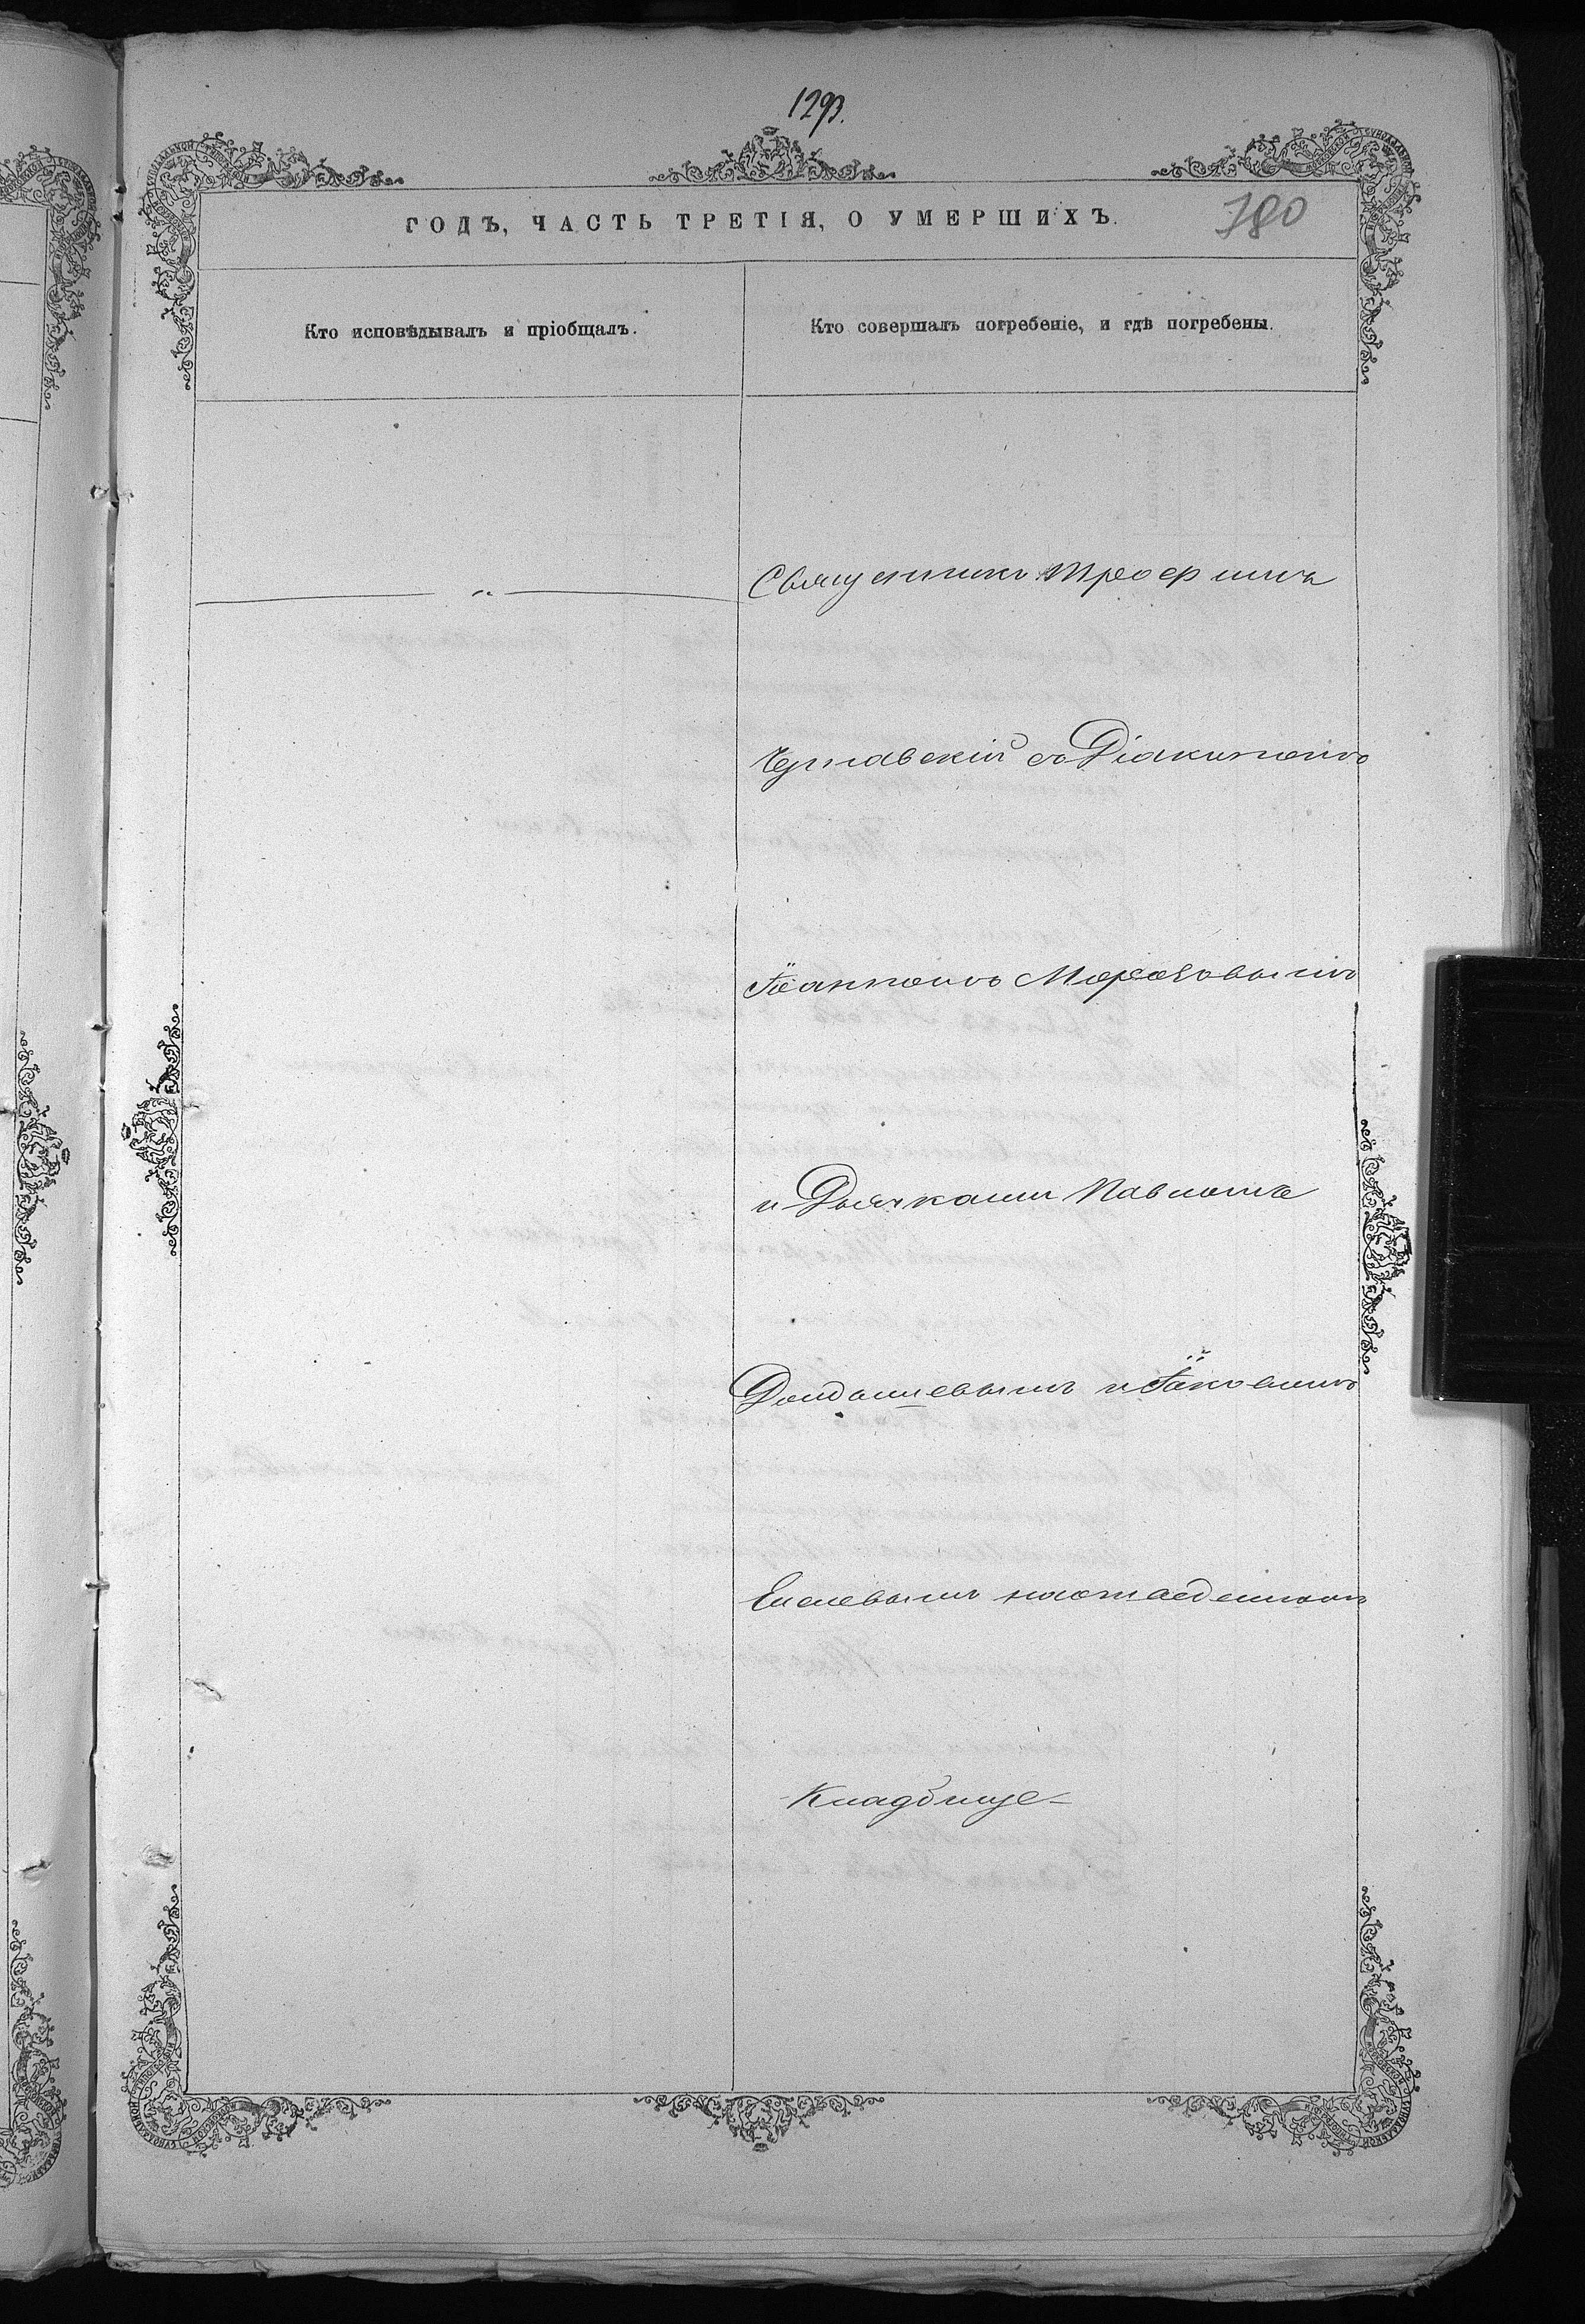 1293.
780
ГОДЪ, ЧАСТЬ ТРЕТІЯ, О УМЕРШИХЪ.
Кто исповѣдывалъ и пріобщалъ.
Кто совершалъ погребеніе, и гдѣ погребены.
Священникъ Трофимъ
Чернавскій съ Діакономъ
Іоанномъ Морозовымъ
и Дьячками Павломъ
и Іаковомъ
Елеевымъ
Кладбище